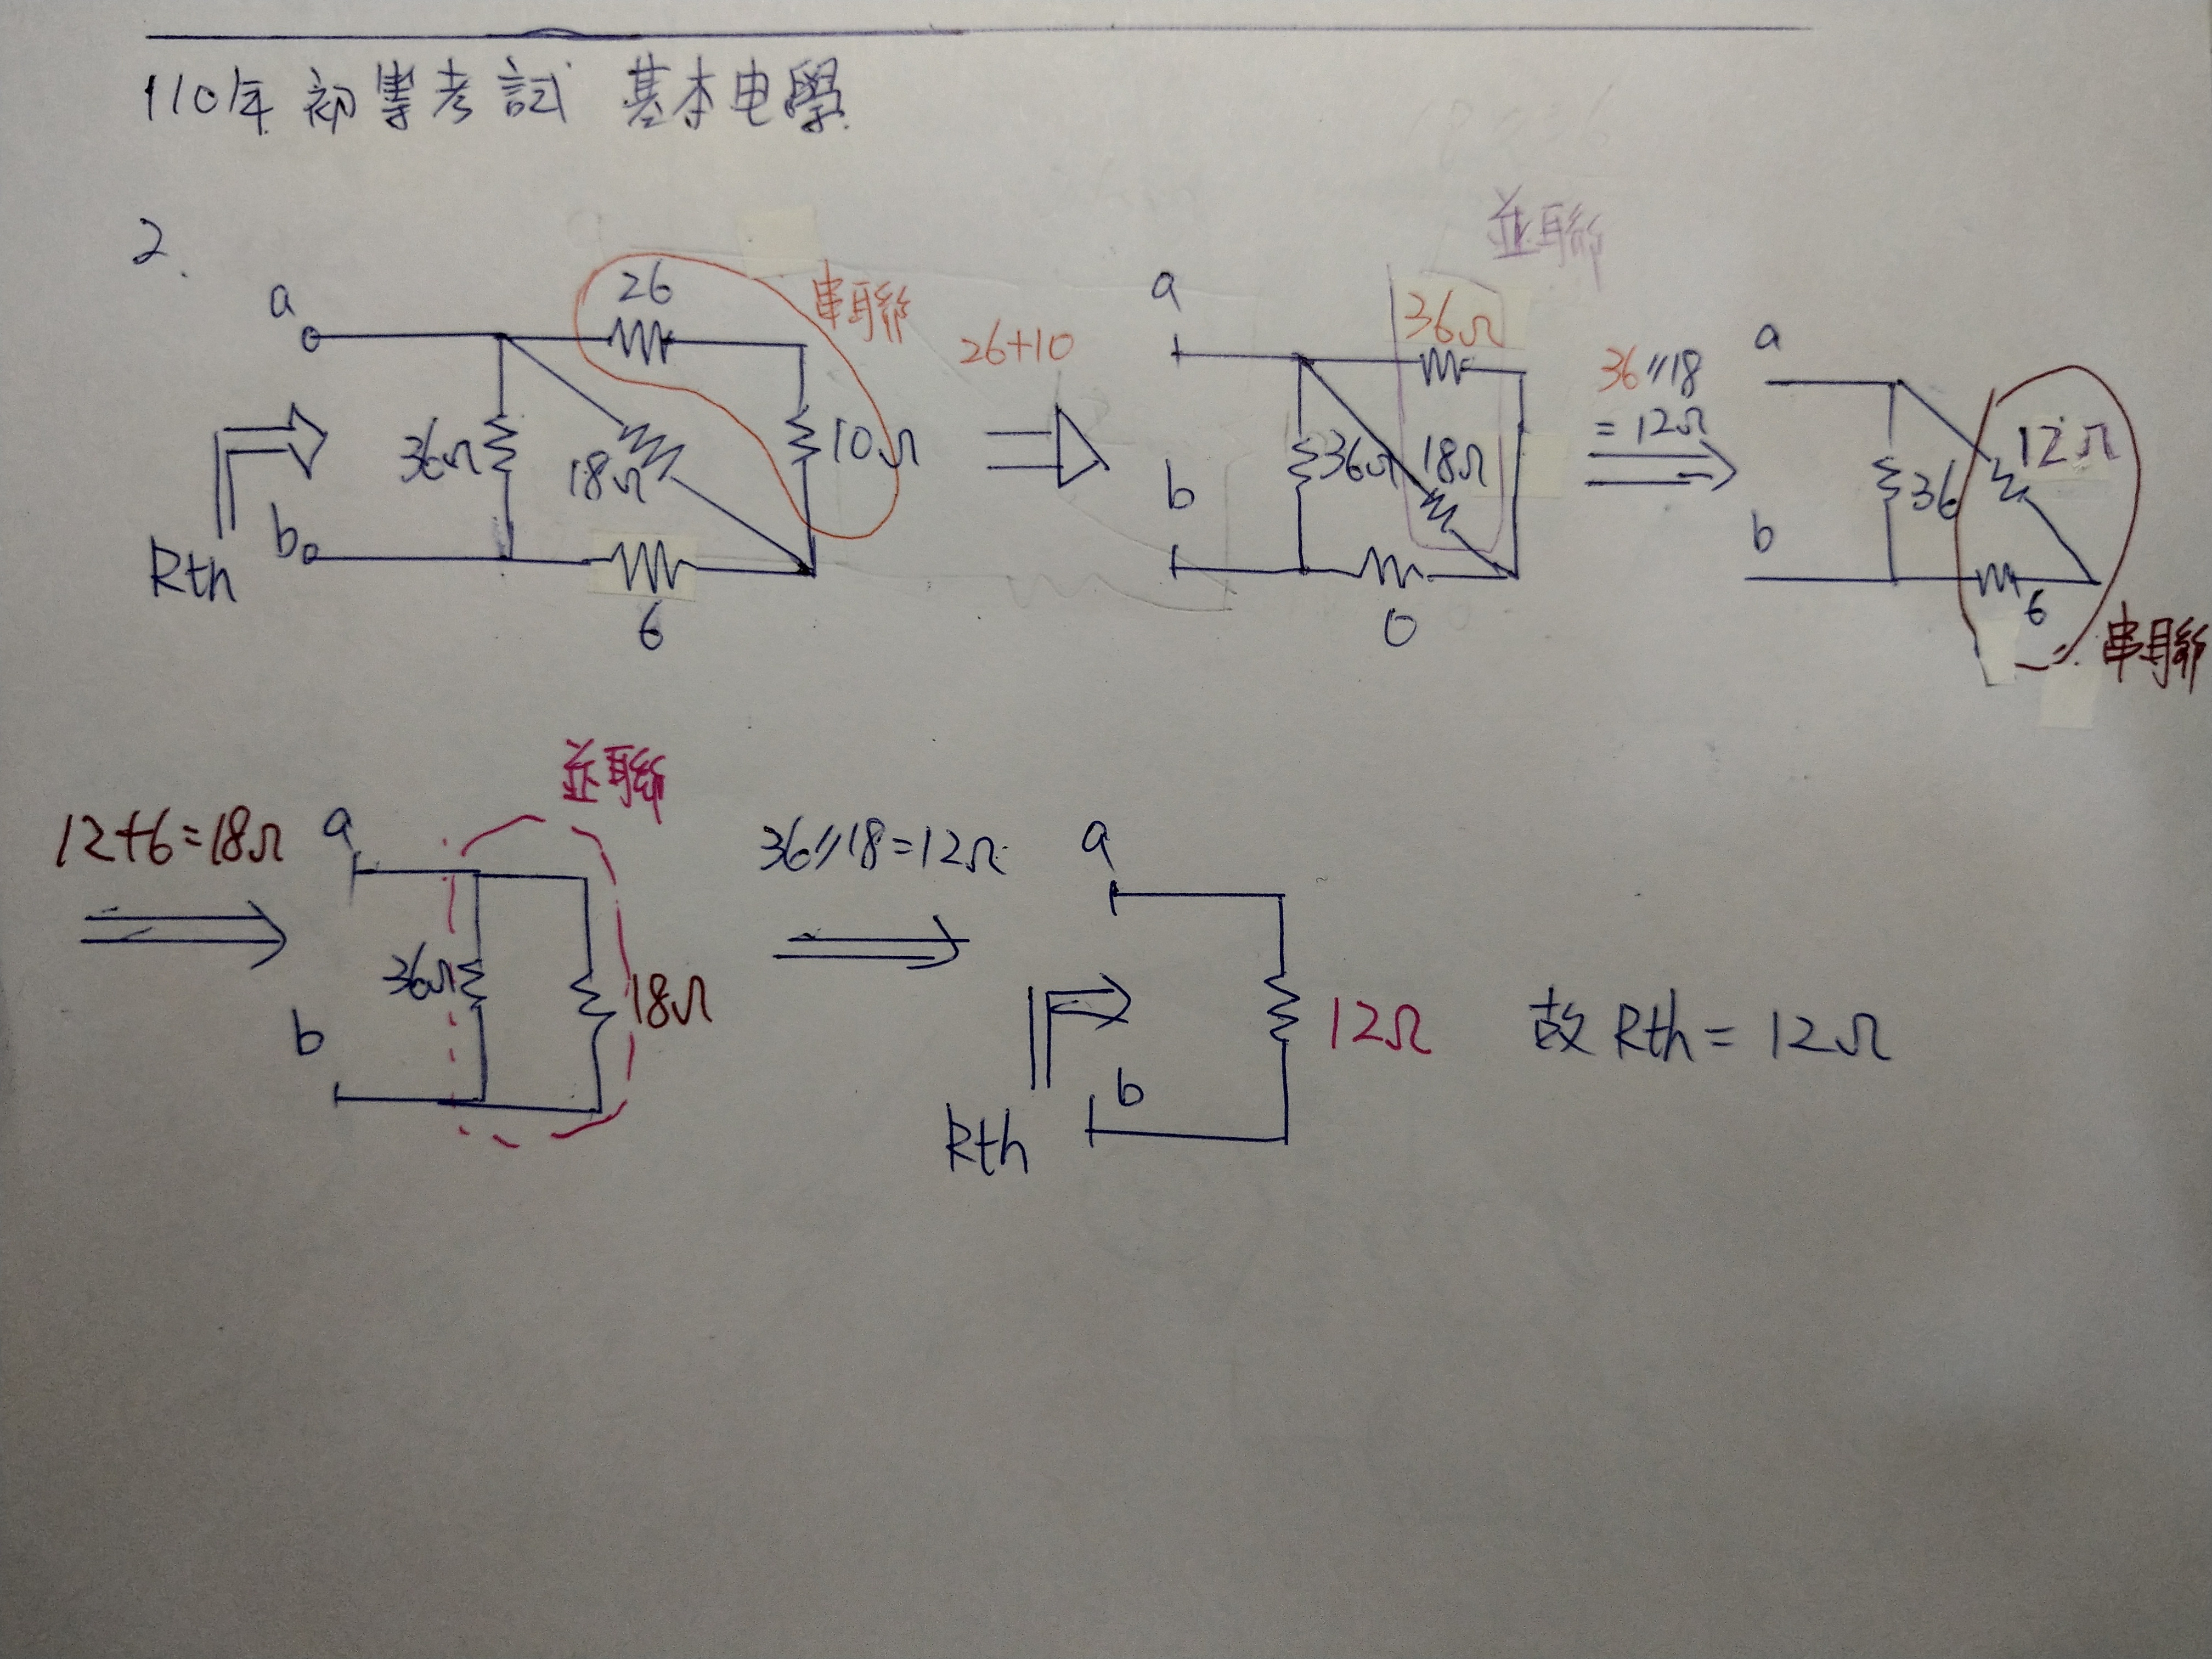 110年 初等考試 基本电學
2.
a
26
串聯
36Ω
18Ω
10Ω
b
Rth
6
26+10
並聯
a
36Ω
36Ω
18Ω
b
0
36//18
=12Ω
a
12Ω
36
b
6
串聯
12+6=18Ω
並聯
a
36Ω
18Ω
b
36//18=12Ω
a
12Ω
b
Rth
故 Rth = 12Ω